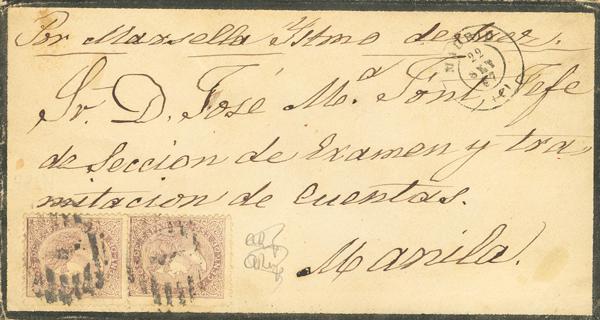 Por Marsella Ytmo de Suez.
MADRID
22
SET
67
(1)
Sr. D. José M.ª Font Jefe
de Seccion de Examen y tra
mitacion de cuentas.
Manila.